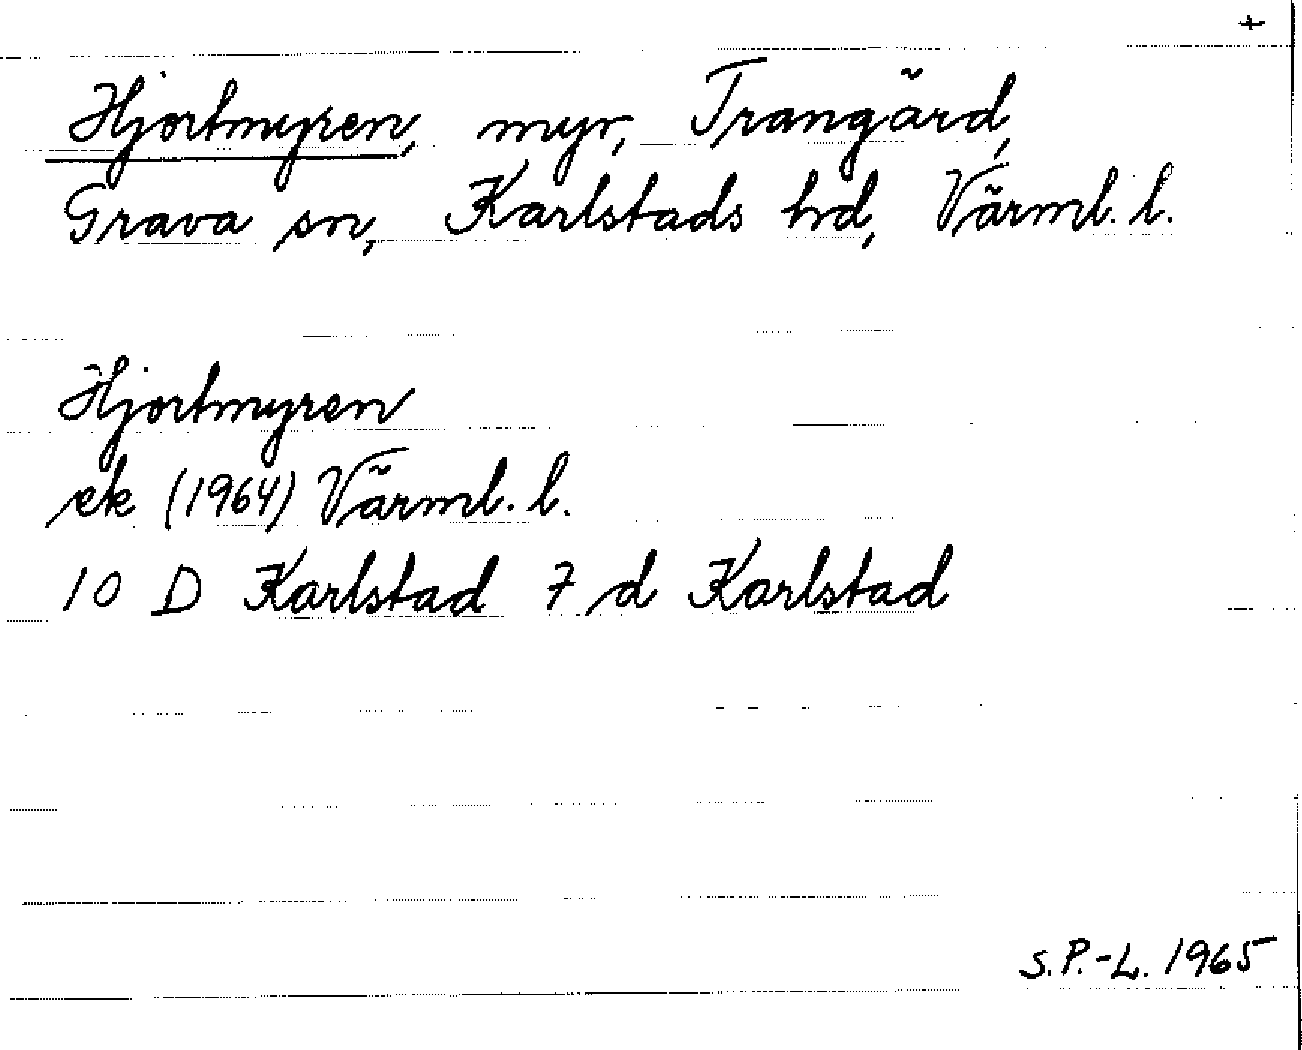 +
Hjortmyren, myr, Trangärd,
Grava sn, Karlstads hd, Värml. l.
Hjortmyren
ek (1964) Värml. l.
10 D Karlstad 7 d Karlstad
S. P.-L. 1965